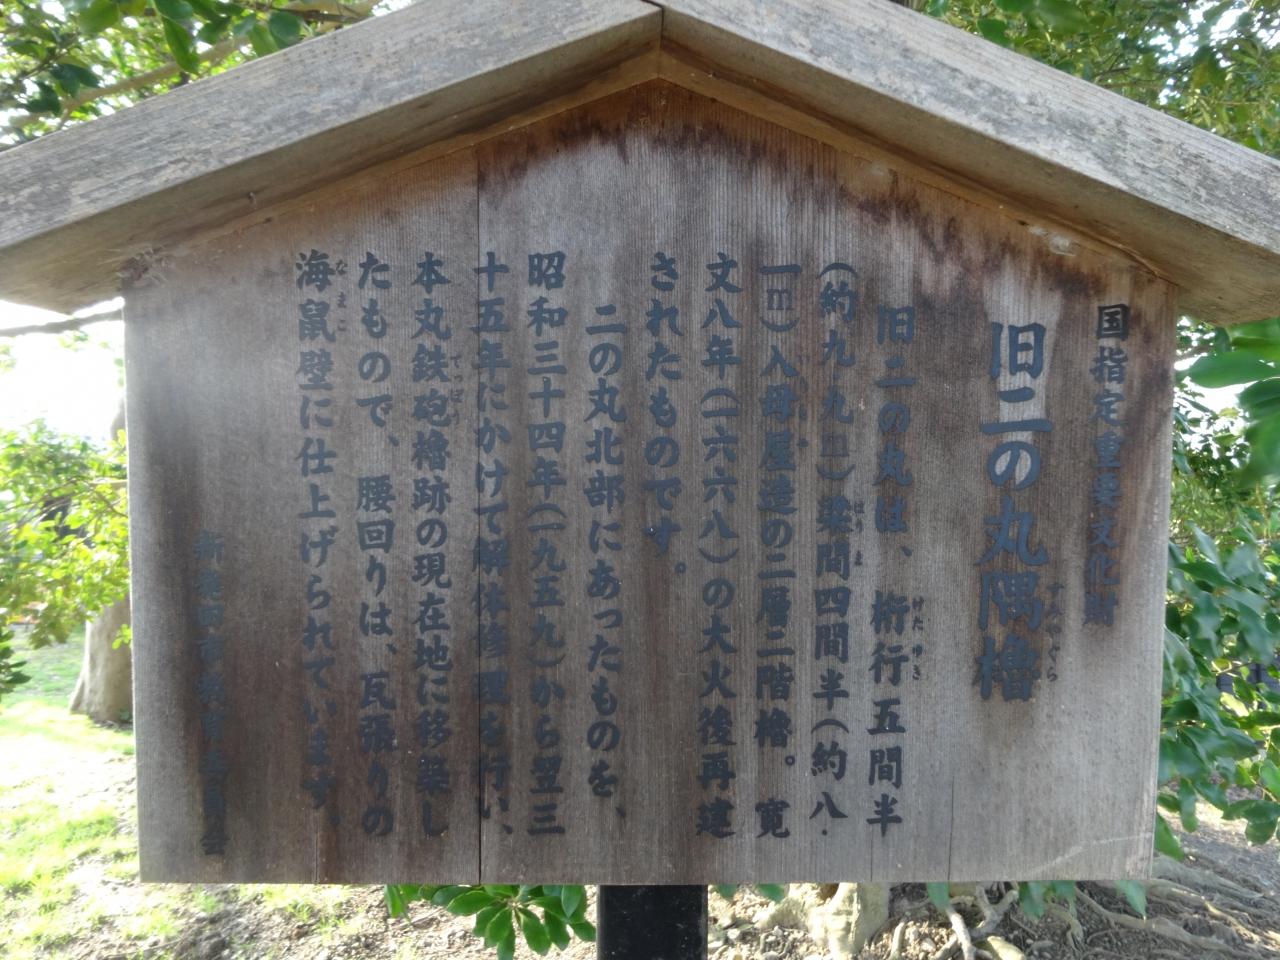 国指定重要文化財
旧二の丸隅櫓
すみやぐら
旧二の丸は、桁行五間半
けたゆき
(約九九九m)梁間四間半(約八.
はりま
一m)入母屋造の二層二階櫓。寛
文八年(一六六八)の大火後再建
されたものです。
二の丸北部にあったものを、
昭和三十四年(一九五九)から翌三
十五年にかけて解体修理を行い、
本丸鉄砲櫓跡の現在地に移築し
てっぽう
たもので、腰回りは、瓦張りの
海鼠壁に仕上げられています。
なまこ
新発田市教育委員会